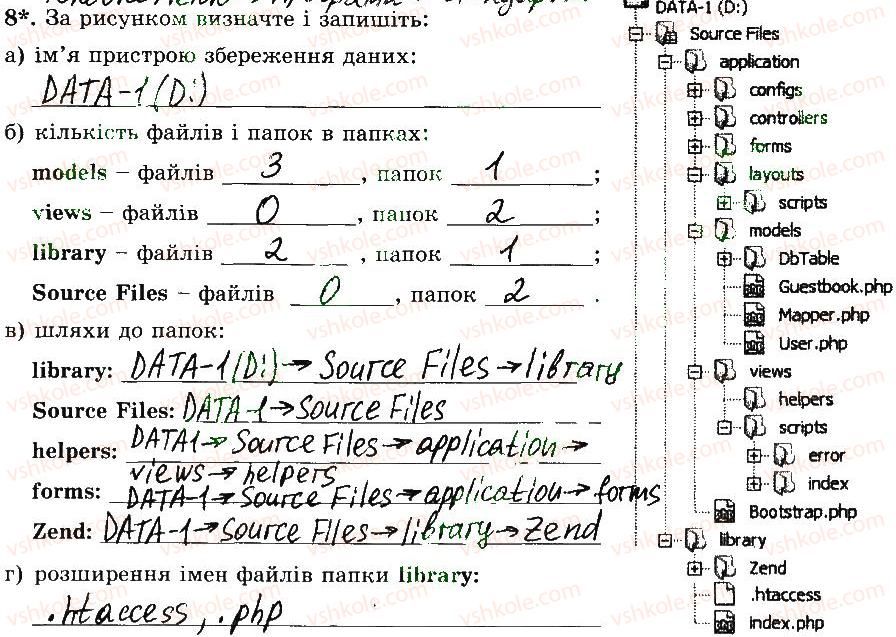 8*. За рисунком визначте і запишіть:
а) ім’я пристрою збереження даних:
DATA-1(D:)
б) кількість файлів і папок в папках:
models – файлів 3, папок 1;
views – файлів 0, папок 2;
library – файлів 2, папок 1;
Source Files – файлів 0, папок 2.
в) шляхи до папок:
library: DATA-1(D:)→Source Files→library
Source Files: DATA-1→Source Files
helpers: DATA1→Source Files→application→
views→helpers
forms: DATA-1→Source Files→application→forms
Zend: DATA-1→Source FIles→library→Zend
г) розширення імен файлів папки library:
.htaccess, .php
DATA-1 (D:)
Source Files
application
configs
controllers
forms
layouts
scripts
models
DbTable
Guestbook.php
Mapper.php
User.php
views
helpers
scripts
error
index
Bootstrap.php
library
Zend
.htaccess
index.php
vshkole.com